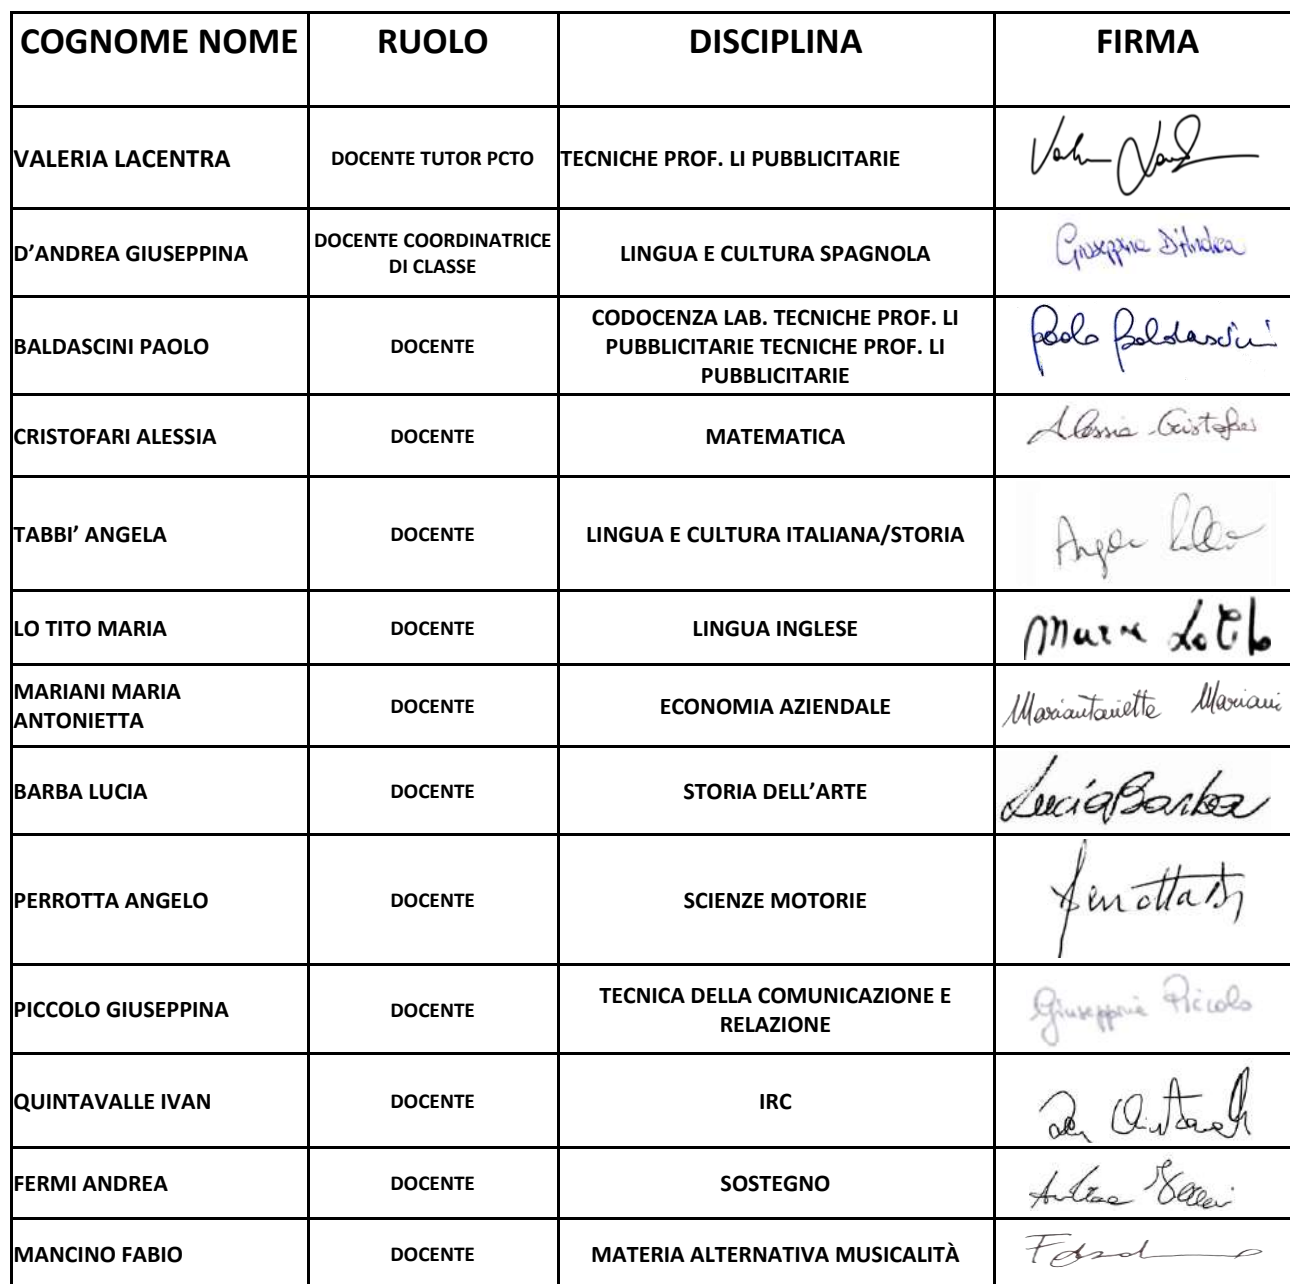 COGNOME NOME RUOLO DISCIPLINA FIRMA
VALERIA LACENTRA DOCENTE TUTOR PCTO TECNICHE PROF. LI PUBBLICITARIE
D’ANDREA GIUSEPPINA DOCENTE COORDINATRICE
DI CLASSE LINGUA E CULTURA SPAGNOLA Giuseppina D'Andrea
BALDASCINI PAOLO DOCENTE CODOCENZA LAB. TECNICHE PROF. LI
PUBBLICITARIE TECNICHE PROF. LI
PUBBLICITARIE Paolo Baldascini
CRISTOFARI ALESSIA DOCENTE MATEMATICA Alessia Cristofari
TABBI’ ANGELA DOCENTE LINGUA E CULTURA ITALIANA/STORIA Angela
LO TITO MARIA DOCENTE LINGUA INGLESE Maria Lo Tito
MARIANI MARIA
ANTONIETTA DOCENTE ECONOMIA AZIENDALE Mariantonietta Mariani
BARBA LUCIA DOCENTE STORIA DELL’ARTE Lucia Barba
PERROTTA ANGELO DOCENTE SCIENZE MOTORIE Perrotta
PICCOLO GIUSEPPINA DOCENTE TECNICA DELLA COMUNICAZIONE E
RELAZIONE Giuseppina Piccolo
QUINTAVALLE IVAN DOCENTE IRC
FERMI ANDREA DOCENTE SOSTEGNO Andrea Fermi
MANCINO FABIO DOCENTE MATERIA ALTERNATIVA MUSICALITÀ